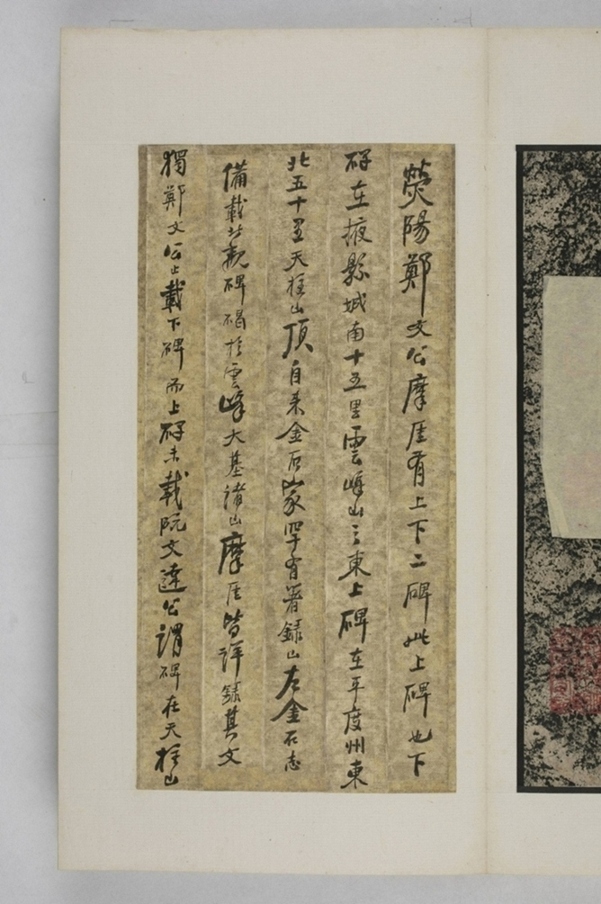 熒陽鄭文公摩厓有上下二碑此上碑也下
碑在掖縣城南十五里雲峰山之東上碑在平度州東
北五十里天柱山頂自来金石家罕有箸録山左金石志
備載北朝碑碣於雲峰大基諸山摩厓皆詳録其文
獨鄭文公止載下碑而上碑未載阮文達公謂碑在天柱山